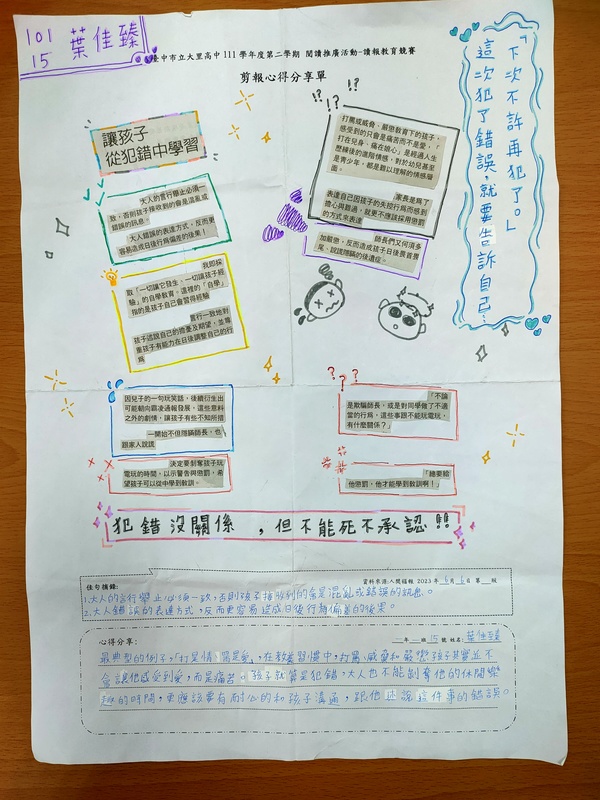 101
15 葉佳臻
臺中市立大里高中 111 學年度第二學期 閱讀推廣活動-讀報教育競賽
剪報心得分享單
讓孩子
從犯錯中學習
大人的言行舉止必須一
致，否則孩子接收到的會是混亂或
錯誤的訊息。
大人錯誤的表達方式，反而更
容易造成日後行為偏差的後果！
我即採
取「一切讓它發生，一切讓孩子經
驗」的自學教育。這裡的「自學」
指的是孩子自己會習得經驗
言行一致地對
孩子述說自己的擔憂及期望，並尊
重孩子有能力在日後調整自己的行
為
!? !? !?
打罵或威脅、嚴懲教育下的孩子，
感受到的只會是痛苦而不是愛，「
打在兒身、痛在娘心」是經過人生
歷練後的進階情感，對於幼兒甚至
是青少年，都是難以理解的情感層
面。
家長是爲了
表達自己因孩子的失控行爲而感到
擔心與難過，就更不應該採用懲罰
的方式來表達
師長們又何須多
加嚴懲，反而造成孩子日後畏首畏
尾、說謊隱瞞的後遺症。
「下次不許再犯了。」
這次犯了錯誤，就要告訴自己：
因兒子的一句玩笑話，後續衍生出
可能朝向霸凌通報發展，這些意料
之外的劇情，讓孩子有些不知所措
一開始不但隱瞞師長，也
跟家人說謊
決定要剝奪孩子玩
電玩的時間，以示警告與懲罰，希
望孩子可以從中學到教訓。
? ? ?
「不論
是欺騙師長，或是對同學做了不適
當的行為，這些事跟不能玩電玩，
有什麼關係？」
「總要給
他懲罰，他才能學到教訓啊！」
犯錯沒關係，但不能死不承認!!
佳句摘錄：
資料來源:人間福報 2023 年 6 月 6 日 第 版
1.大人的言行舉止必須一致，否則孩子接收到的會是混亂或錯誤的訊息。
2.大人錯誤的表達方式，反而更容易造成日後行為偏差的後果。
心得分享：
年 班 15 號 姓名:葉佳臻
最典型的例子，「打是情、罵是愛」，在教養習慣中，打罵、威脅和嚴懲孩子其實並不
會讓他感受到愛，而是痛苦。孩子就算是犯錯，大人也不能剝奪他的休閒樂
趣的時間，更應該要有耐心的和孩子溝通，跟他述說這件事的錯誤。